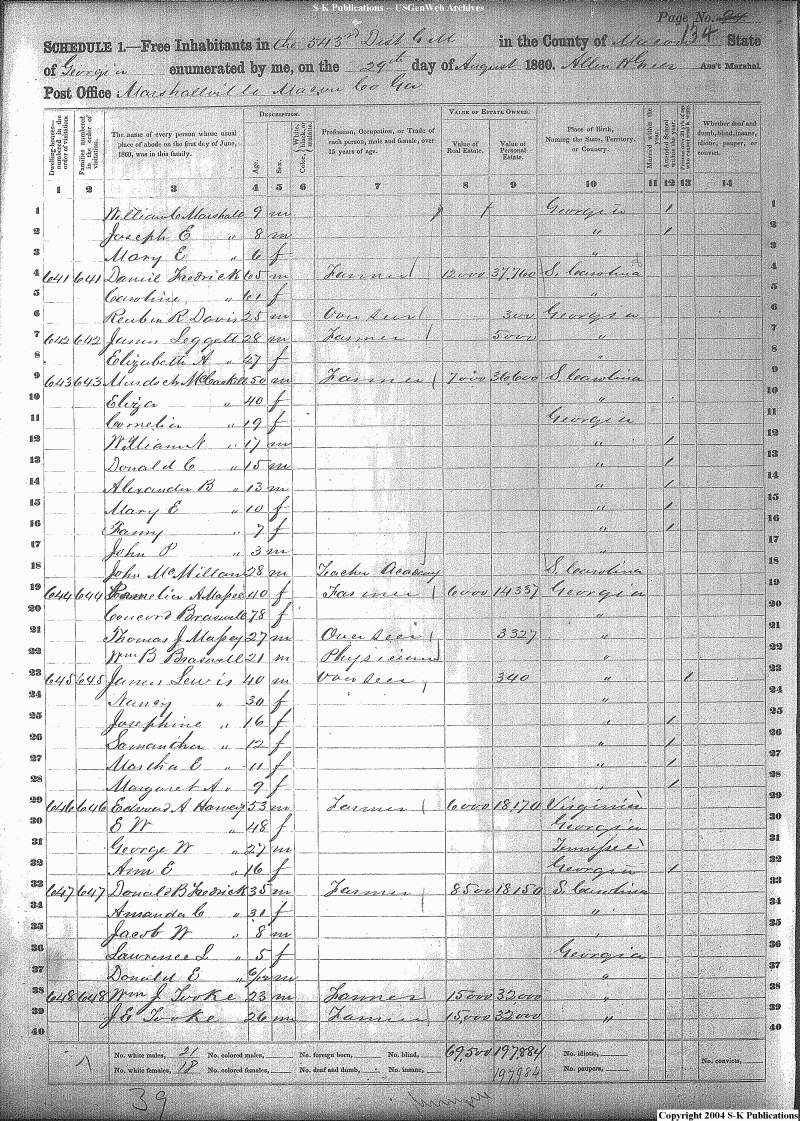 S-K Publications – USGenWeb Archives
Page No. 134
SCHEDULE 1.—Free Inhabitants in the 543rd Dist G M in the County of Macon State
of Georgia enumerated by me, on the 29th day of August 1860. Allen H Greer Ass't Marshal
Post Office Marshallville Macon Co Ga
Dwelling-houses—numbered in the order of visitation.
Families numbered in the order of visitation.
The name of every person whose usual place of abode on the first day of June, 1860, was in this family.
DESCRIPTION.
Age.
Sex.
Color, White, black, or mulatto.
Profession, Occupation, or Trade of each person, male and female, over 15 years of age.
VALUE OF ESTATE OWNED.
Value of Real Estate.
Value of Personal Estate.
Place of Birth, Naming the State, Territory, or Country.
Married within the year.
Attended School within the year.
Whether deaf and dumb, blind, insane, idiotic, pauper, or convict.
1 2 3 4 5 6 7 8 9 10 11 12 13 14
1 William C Marshall 9 m Georgia 1 1
2 Joseph E " 8 m " 1 2
3 Mary E " 6 f " 3
4 641 641 Daniel Fredrick 65 m Farmer 12000 37,760 S. Carolina 4
5 Caroline " 61 f " 5
6 Reuben R Davis 25 m Overseer 300 Georgia 6
7 642 642 James Leggett 28 m Farmer 5000 " 7
8 Elizabeth A " 27 f " 8
9 643 643 Murdoch McCaskill 50 m Farmer 7000 36,600 S. Carolina 9
10 Eliza " 40 f " 10
11 Cornelia " 19 f Georgia 11
12 William N " 17 m " 1 12
13 Donald C " 15 m " 1 13
14 Alexander B " 13 m " 1 14
15 Mary E " 10 f " 1 15
16 Fanny " 7 f " 1 16
17 John P " 3 m " 17
18 John McMillan 28 m Teacher Academy S. Carolina 18
19 644 644 A Mapey 40 f Farmer 6000 14337 Georgia 19
20 Concord Braswell 78 f " 20
21 Thomas J Mapey 27 m Overseer 3327 " 21
22 Wm B Braswell 21 m Physician " 22
23 645 645 James Lewis 40 m Overseer 340 " 1 23
24 Nancy " 30 f " 24
25 Josephine " 16 f " 1 25
26 Samantha " 12 f " 1 26
27 Martha E " 11 f " 1 27
28 Margaret A " 9 f " 1 28
29 646 646 Edward A Harvey 53 m Farmer 6000 18,170 Virginia 29
30 E W " 48 f Georgia 30
31 George W " 27 m Tennessee 31
32 Ann E " 16 f Georgia 1 32
33 647 647 Donald B Fredrick 35 m Farmer 8500 18150 S. Carolina 33
34 Amanda C " 31 f " 34
35 Jacob W " 8 m " 35
36 Lawrence L " 5 f Georgia 36
37 Donald E " 6/12 m " 37
38 648 648 Wm J Tooke 23 m Farmer 15000 32000 " 38
39 J E Tooke 26 m Farmer 15,000 32000 " 39
40 40
No. white males, 21 No. colored males, No. foreign born, No. blind, 69,500 197884 No. idiotic,
No. white females, 18 No. colored females, No. deaf and dumb, No. insane, 197,984 No. paupers, No. convicts,
39
Copyright 2004 S-K Publications